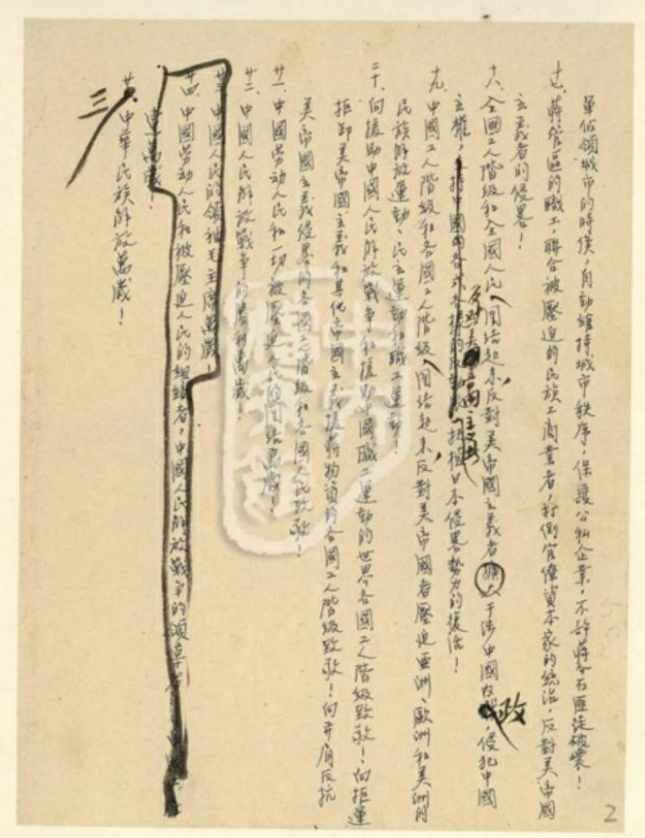 軍佔領城市的時候，自動維持城市秩序，保護公私企業，不許蔣介石匪徒破壞！
十七、蔣管區的職工，聯合被壓迫的民族工商業者，打倒官僚資本家的統治，反對美帝國
主義者的侵畧！
十八、全國工人階級和全國人民，團結起來，反對美帝國主義者擴大干涉中國內政，侵犯中國
主權，反對美帝國主義扶植日本侵畧勢力的復活！
十九、中國工人階級和各國工人階級，團結起來，反對美帝國者壓迫亞洲、歐洲和美洲的
民族解放運動、民主運動和職工運動！
二十、向援助中國人民解放戰爭和援助中國職工運動的世界各國工人階級致敬！向拒運
拒卸美帝國主義和其他帝國主義援蔣物資的各國工人階級致敬！向並肩反抗
美帝國主義侵畧的各國工人階級和各國人民致敬！
廿一、中國勞動人民和一切被壓迫人民的團結萬歲！
廿二、中國人民解放戰爭的勝利萬歲！
廿三、中國人民的領袖毛主席萬歲！
廿四、中國勞動人民和被壓迫人民的組織者，中國人民解放戰爭的領導者
萬歲！
三
廿、中華民族解放萬歲！
2